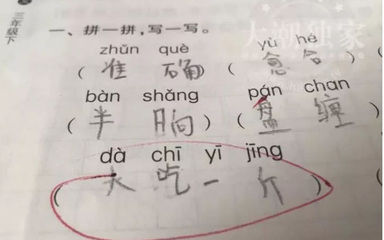 大潮独家
三年级下
一、拼一拼,写一写。
zhǔn què yù hé
(准 确) (愈合
bàn shǎng pán chan
(半 晌) (盘 缠
dà chī yī jīng
(大吃一斤)